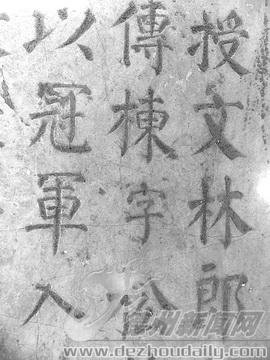 授文林郎
傳棟字公
以冠軍入
德州新闻网
www.dezhoudaily.com